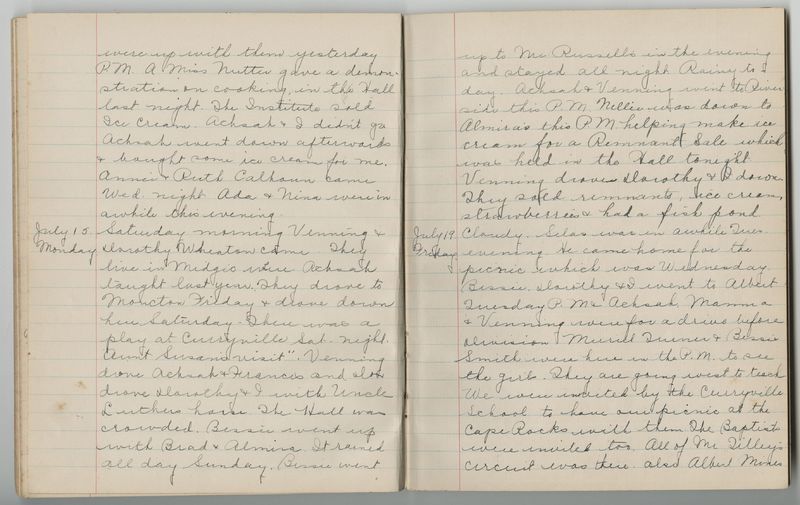 were up with them yesterday
P.M. A Miss Nutter gave a demon-
stration on cooking, in the Hall
last night. The Institute sold
Ice Cream. Achsah & I didn't go
Achsah went down afterwards
& bought some ice cream for me.
Annie & Ruth Calhoun came
Wed. night Ada & Nina were in
awhile this evening.
July 15 Saturday morning Venning &
Monday Dorothy Wheaton came. They
live in Midgic where Achsah
taught last year. They drove to
Moncton Friday & drove down
here Saturday. There was a
play at Curryville Sat. night.
"Aunt Susan's visit". Venning
drove Achsah & Frances and
drove Dorothy & I with Uncle
Luthers horse. The Hall was
crowded. Bessie went up
with Brad & Almira. It rained
all day Sunday. Bessie went
up to Mr Russells in the evening
and stayed all night Rainy to-
day. Achsah & Venning went to River-
side this P.M. Nellie was down to
Almiras this P.M. helping make ice
cream for a Remnant Sale which
was held in the Hall tonight
Venning drove Dorothy & I down.
They sold remnants, ice cream,
strawberries & had a fish pond
July 19 Cloudy. Silas was in awhile Tues.
Friday evening. He came home for the
picnic which was Wednesday.
Bessie, Dorothy & I went to Albert
Tuesday P.M. Achsah, Mamma
& Venning were for a drive before
division Muriel Turner & Bessie
Smith were here in the P.M. to see
the girls. They are going west to teach
We were invited by the Curryville
School to have our picnic at the
Cape Rocks with them The Baptist
were invited too. All of Mr Tilley's
circuit was there. also Albert Mines